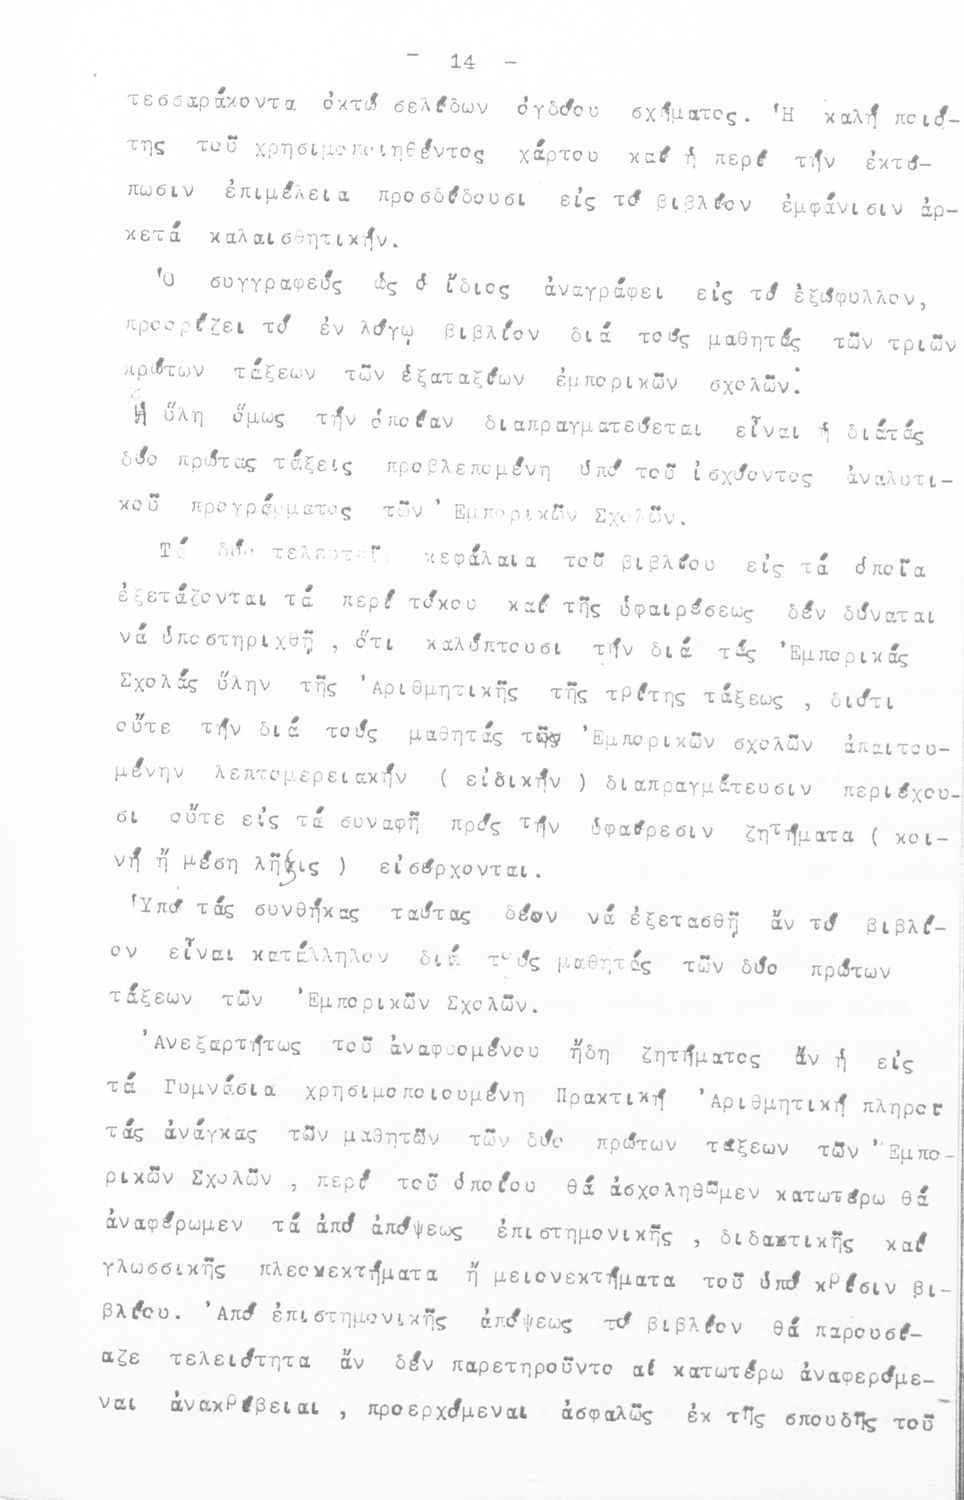 - 14 -
τεσσαράκοντα ὀκτώ σελίδων ὀγδόου σχήματος. Ἡ καλή ποιό-
της τοῦ χρησιμοποιηθέντος χάρτου καί ἡ περί τήν ἐκτύ-
πωσιν ἐπιμέλεια προσδίδουσι εἰς τό βιβλίον ἐμφάνισιν ἀρ-
κετά καλαισθητικήν.
Ὁ συγγραφεύς ὡς ὁ ἴδιος ἀναγράφει εἰς τό ἐξώφυλλον,
προορίζει τό ἐν λόγῳ βιβλίον διά τούς μαθητάς τῶν τριῶν
πρώτων τάξεων τῶν ἑξαταξίων ἐμπορικῶν σχολῶν.
Ἡ ὕλη ὅμως τήν ὁποίαν διαπραγματεύεται εἶναι ἡ διά τάς
δύο πρώτας τάξεις προβλεπομένη ὑπό τοῦ ἰσχύοντος ἀναλυτι-
κοῦ προγράμματος τῶν Ἐμπορικῶν Σχολῶν.
Τά δύο τελευταῖα κεφάλαια τοῦ βιβλίου εἰς τά ὁποῖα
ἐξετάζονται τά περί τόκου καί τῆς ὑφαιρέσεως δέν δύναται
νά ὑποστηριχθῇ , ὅτι καλύπτουσι τήν διά τάς Ἐμπορικάς
Σχολάς ὕλην τῆς Ἀριθμητικῆς τῆς τρίτης τάξεως , διότι
οὔτε τήν διά τούς μαθητάς τῶν Ἐμπορικῶν σχολῶν ἀπαιτου-
μένην λεπτομερειακήν ( εἰδικήν ) διαπραγμάτευσιν περιέχου-
σι οὔτε εἰς τά συναφῆ πρός τήν ὑφαίρεσιν ζητήματα ( κοι-
νή ἤ μέση λῆξις ) εἰσέρχονται.
Ὑπό τάς συνθήκας ταύτας δέον νά ἐξετασθῇ ἄν τό βιβλί-
ον εἶναι κατάλληλον διά τούς μαθητάς τῶν δύο πρώτων
τάξεων τῶν Ἐμπορικῶν Σχολῶν.
Ἀνεξαρτήτως τοῦ ἀναφυομένου ἤδη ζητήματος ἄν ἡ εἰς
τά Γυμνάσια χρησιμοποιουμένη Πρακτική Ἀριθμητική πληροῖ
τάς ἀνάγκας τῶν μαθητῶν τῶν δύο πρώτων τάξεων τῶν Ἐμπο-
ρικῶν Σχολῶν , περί τοῦ ὁποίου θά ἀσχοληθῶμεν κατωτέρω θά
ἀναφέρωμεν τά ἀπό ἀπόψεως ἐπιστημονικῆς , διδακτικῆς καί
γλωσσικῆς πλεονεκτήματα ἤ μειονεκτήματα τοῦ ὑπό κρίσιν βι-
βλίου. Ἀπό ἐπιστημονικῆς ἀπόψεως τό βιβλίον θά παρουσί-
αζε τελειότητα ἄν δέν παρετηροῦντο αἱ κατωτέρω ἀναφερόμε-
ναι ἀνακρίβειαι , προερχόμεναι ἀσφαλῶς ἐκ τῆς σπουδῆς τοῦ